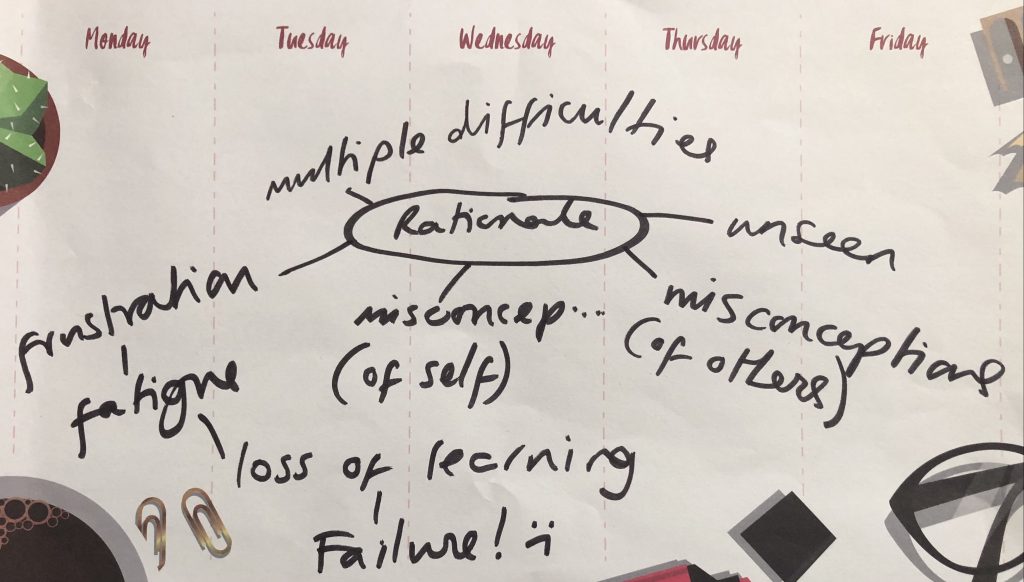 Monday Tuesday Wednesday Thursday Friday
multiple difficulties
Rationale
unseen
frustration
misconcep...
(of self)
misconceptions
(of others)
fatigue
loss of learning
Failure! :(